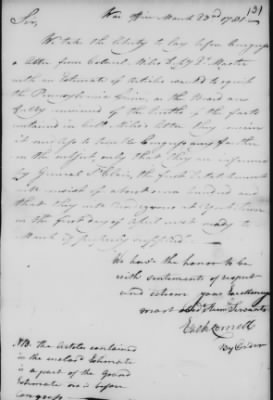 War Office March 23rd 1781 (3)
Sir,
We take the liberty to lay before Congress
a letter from Colonel Miles D. Qr Master
with an Estimate of Articles wanted to equip
the Pennsylvania Line, as the Board are
fully convinced of the truth of the facts
contained in Coll. Miles's letter they
it to Congress any farther
on the subject, only that they are informed
by General St Clair, the first Detachment
will consist of about nine hundred and
that they will rendezvous at York Town
on the first day of April next ready to
March if properly supplied.
We have the honor to be
with sentiments of respect
and esteem your Excellency's
most Servants
By Order
NB. the Articles contained
in the enclosed Estimate
is a part of the Grand
Estimate now before
Congress